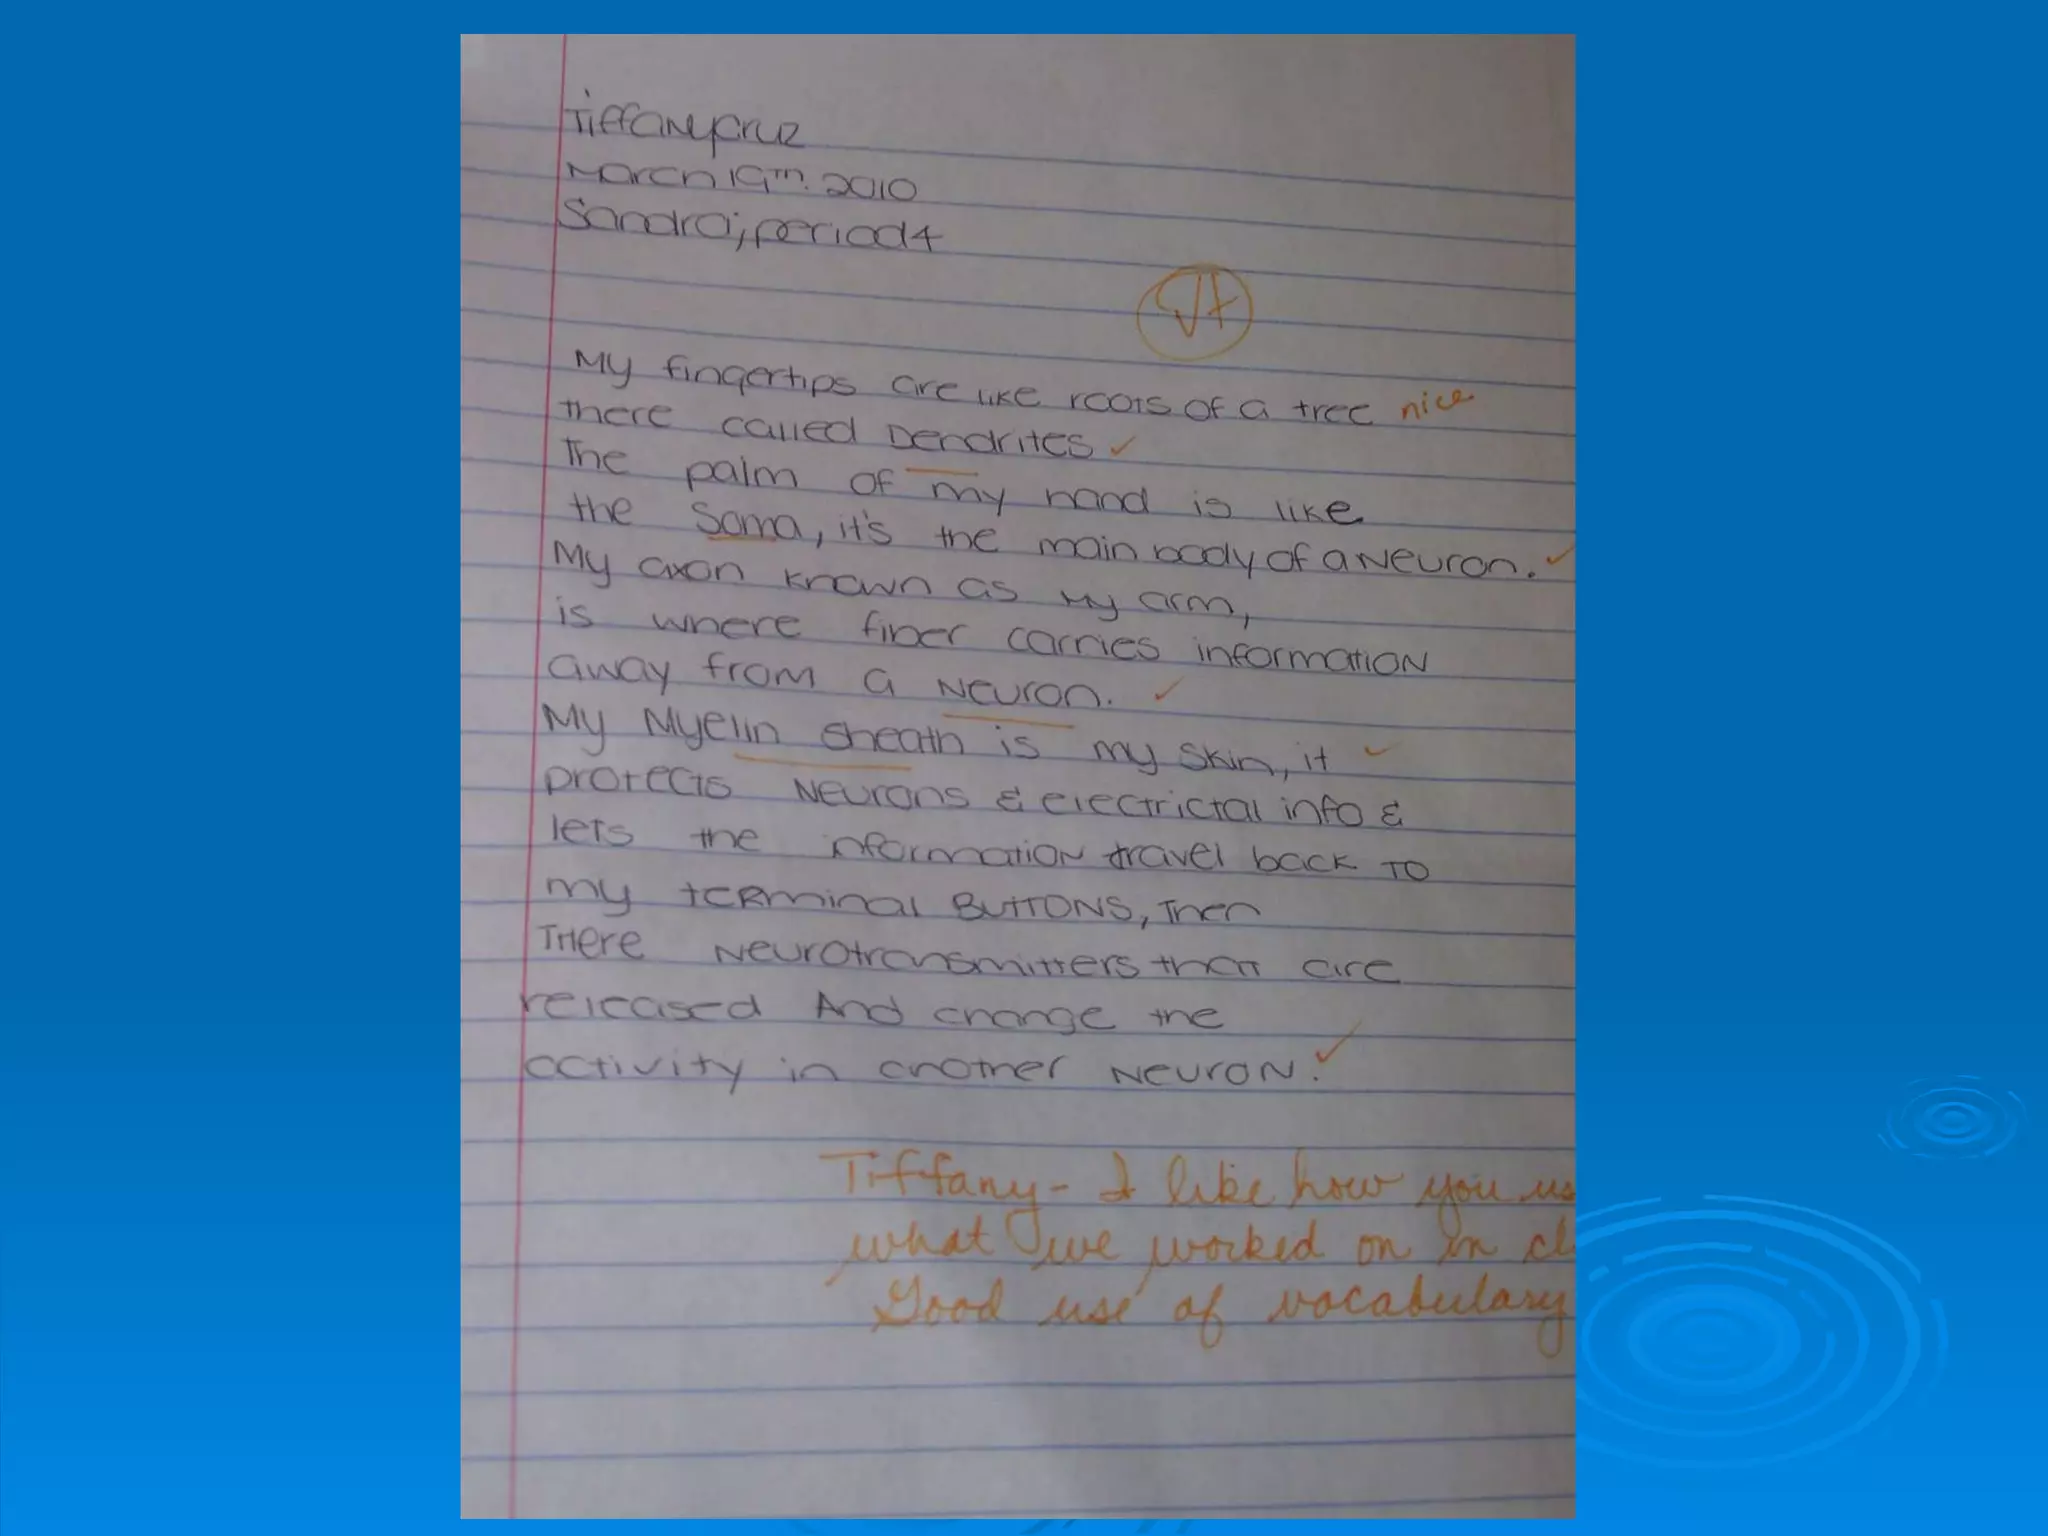 Tiffany Cruz
March 19th. 2010
Sandra; period 4
√+
My fingertips are like roots of a tree nice
there called Dendrites ✓
The palm of my hand is like
the Soma, it's the main body of a Neuron. ✓
My axon known as my arm,
is where fiber carries information
away from a Neuron. ✓
My Myelin sheath is my skin, it ✓
protects Neurons & electrictal info &
lets the information travel back to
my terminal Buttons, Then
THere Neurotransmitters that are
released And change the
activity in another Neuron. ✓
Tiffany - I like how you us
what we worked on in cl
Good use of vocabulary